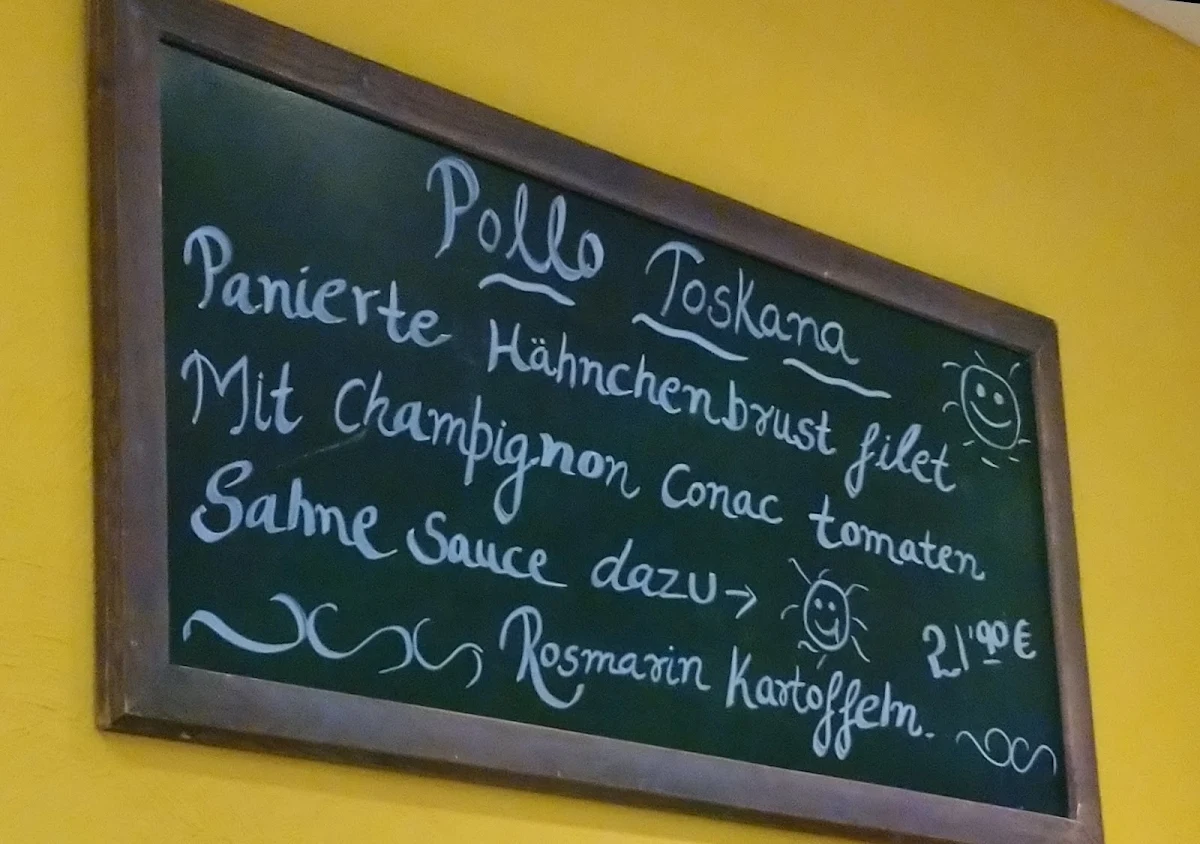 Pollo Toskana
Panierte Hähnchenbrust filet
Mit Champignon Conac tomaten
Sahne Sauce dazu →
21'90 €
Rosmarin Kartoffeln.